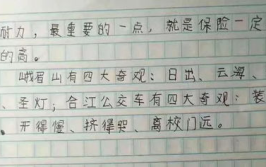 耐力，最重要的一点，就是保险一定
的高。
峨眉山有四大奇观：日出、云海、
、圣灯，合江公交车有四大奇观：装
、开得慢、挤得哭、离校门远。